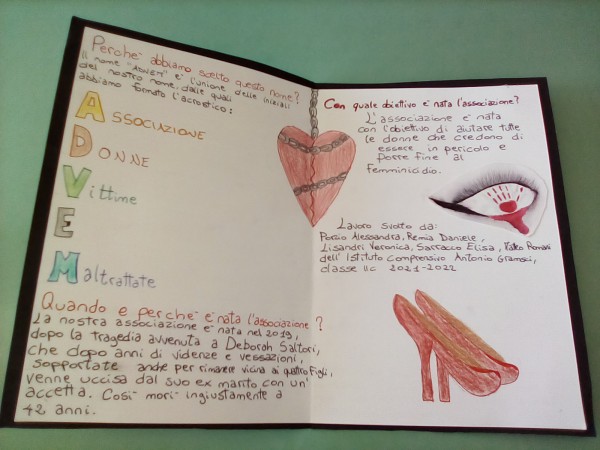 Perchè abbiamo scelto questo nome?
Il nome "ADVEM" è l'unione delle iniziali
del nostro nome, dalle quali
abbiamo formato l'acrostico:
ASSOCIAZIONE
DONNE
Vittime
E
Maltrattate
Quando e perchè è nata l'associazione?
La nostra associazione è nata nel 2019,
dopo la tragedia avvenuta a Deborah Saltori,
che dopo anni di violenze e vessazioni,
sopportate anche per rimanere vicina ai quattro figli,
venne uccisa dal suo ex marito con un'
accetta. Così morì ingiustamente a
42 anni.
Con quale obiettivo è nata l'associazione?
L'associazione è nata
con l'obiettivo di aiutare tutte
le donne che credono di
essere in pericolo e
porre fine al
Femminicidio.
Lavoro svolto da:
Porzio Alessandra, Remia Daniele,
Lisandri Veronica, Sarracco Elisa,
dell'Istituto Comprensivo Antonio Gramsci,
classe IIC 2021-2022